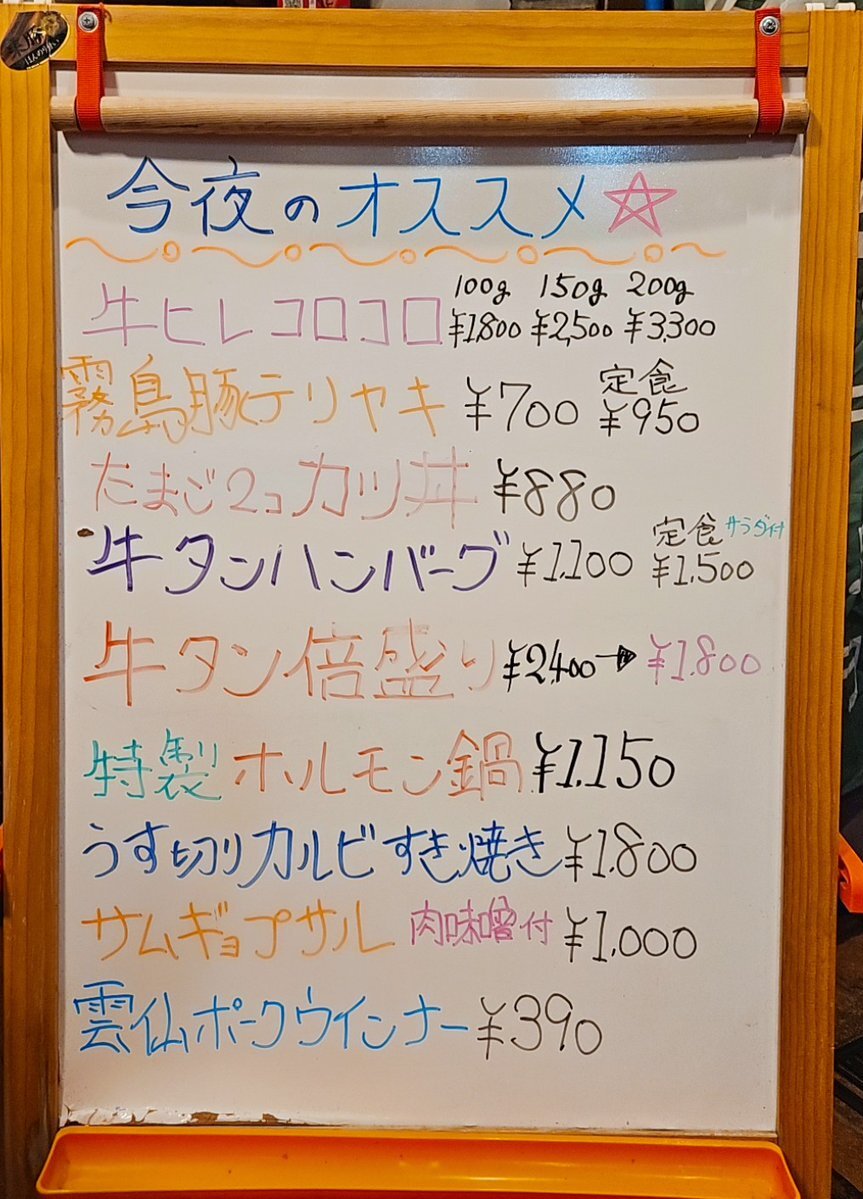 今夜のオススメ☆
100g 150g 200g
牛ヒレコロコロ ¥1,800 ¥2,500 ¥3,300
定食
霧島豚テリヤキ ¥700 ¥950
たまご2コカツ丼 ¥880
定食 サラダ付
牛タンハンバーグ ¥1,100 ¥1,500
牛タン倍盛り ¥2,400→¥1,800
特製ホルモン鍋 ¥1,150
うす切りカルビすき焼き ¥1,800
サムギョプサル 肉味噌付 ¥1,000
雲仙ポークウインナー ¥390